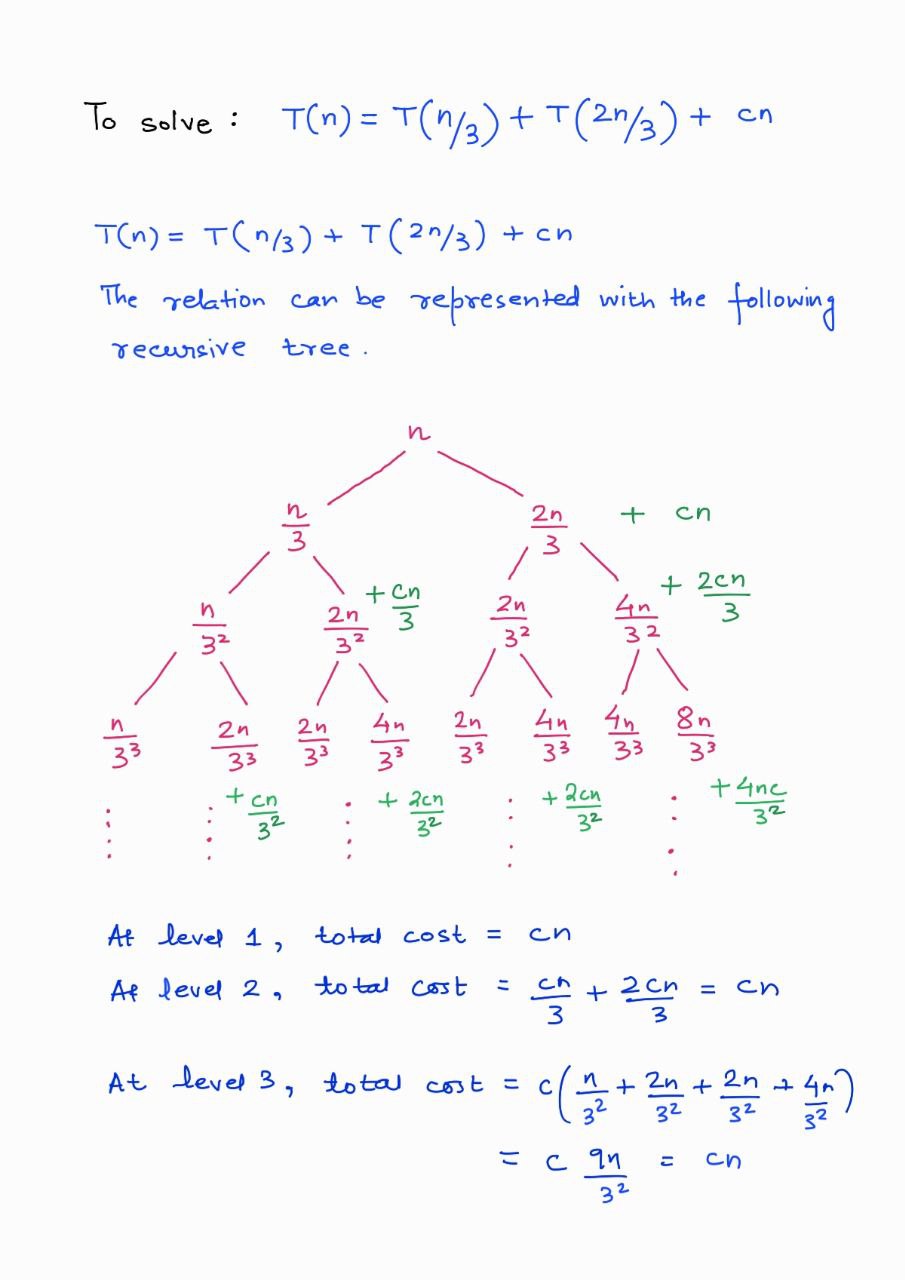 To solve : T(n) = T(n/3) + T(2n/3) + cn
T(n) = T(n/3) + T(2n/3) + cn
The relation can be represented with the following
recursive tree.
n
n/3 2n/3 + cn
n/3² 2n/3² + cn/3 2n/3² 4n/3² + 2cn/3
n/3³ 2n/3³ 2n/3³ 4n/3³ 2n/3³ 4n/3³ 4n/3³ 8n/3³
+ cn/3² + 2cn/3² + 2cn/3² + 4nc/3²
At level 1, total cost = cn
At level 2, total cost = cn/3 + 2cn/3 = cn
At level 3, total cost = c(n/3² + 2n/3² + 2n/3² + 4n/3²)
= c 9n/3² = cn